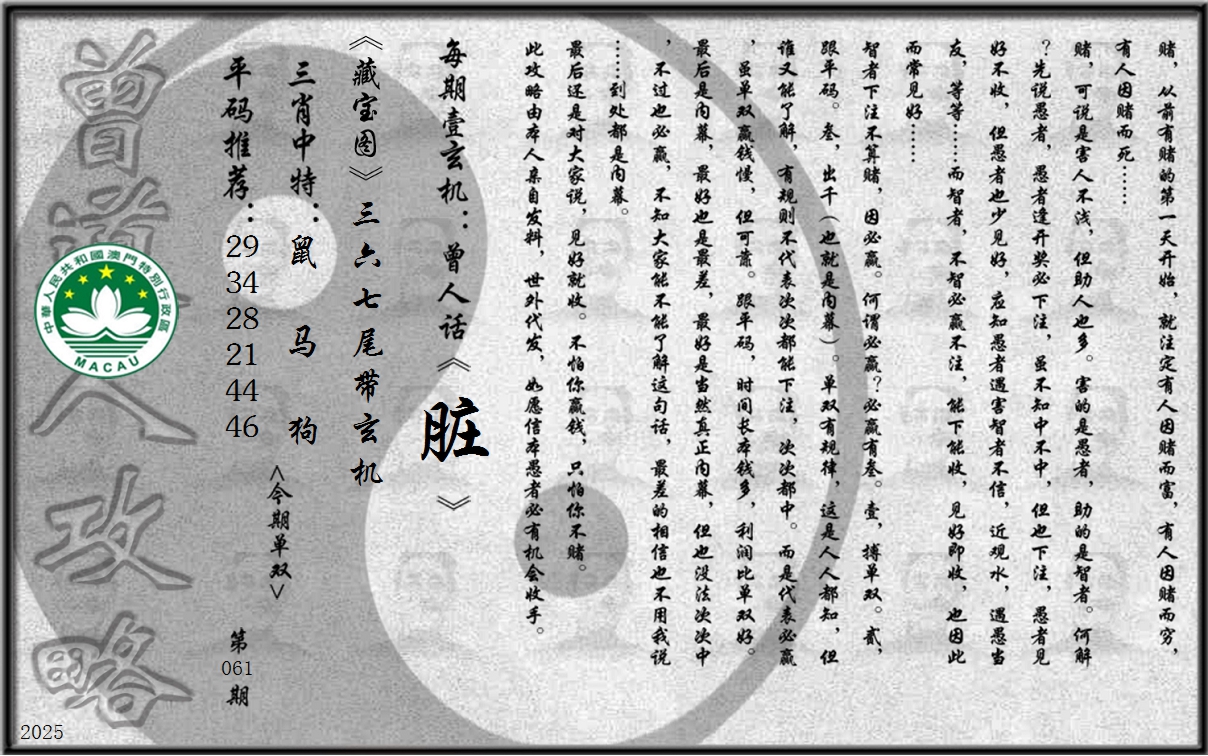 赌，从前有赌的第一天开始，就注定有人因赌而富，有人因赌而穷，
有人因赌而死……
赌，可说是害人不浅，但助人也多。害的是愚者，助的是智者。何解
？先说愚者，愚者逢开奖必下注，虽不知中不中，但也下注，愚者见
好不收，但愚者也少见好，应知愚者遇害智者不信，近观水，遇愚当
友，等等……而智者，不智必赢不注，能下能收，见好即收，也因此
而常见好……
智者下注不算赌，因必赢。何谓必赢？必赢有叁。壹，搏单双。贰，
跟平码。叁，出千（也就是内幕）。单双有规律，这是人人都知，但
谁又能了解，有规则不代表次次都能下注，次次都中。而是代表必赢
，虽单双赢钱慢，但可靠。跟平码，时间长本钱多，利润比单双好。
最后是内幕，最好也是最差，最好是当然真正内幕，但也没法次次中
，不过也必赢，不知大家能不能了解这句话，最差的相信也不用我说
……到处都是内幕。
最后还是对大家说，见好就收。不怕你赢钱，只怕你不赌。
此攻略由本人亲自发料，世外代发，如愿信本愚者必有机会收手。
每期壹玄机：曾人话《脏》
《藏宝图》三六七尾带玄机
三肖中特：鼠 马 狗
平码推荐：29 34 28 21 44 46
<今期单双>
第061期
曾道人攻略
中華人民共和國澳門特別行政區
MACAU
2025